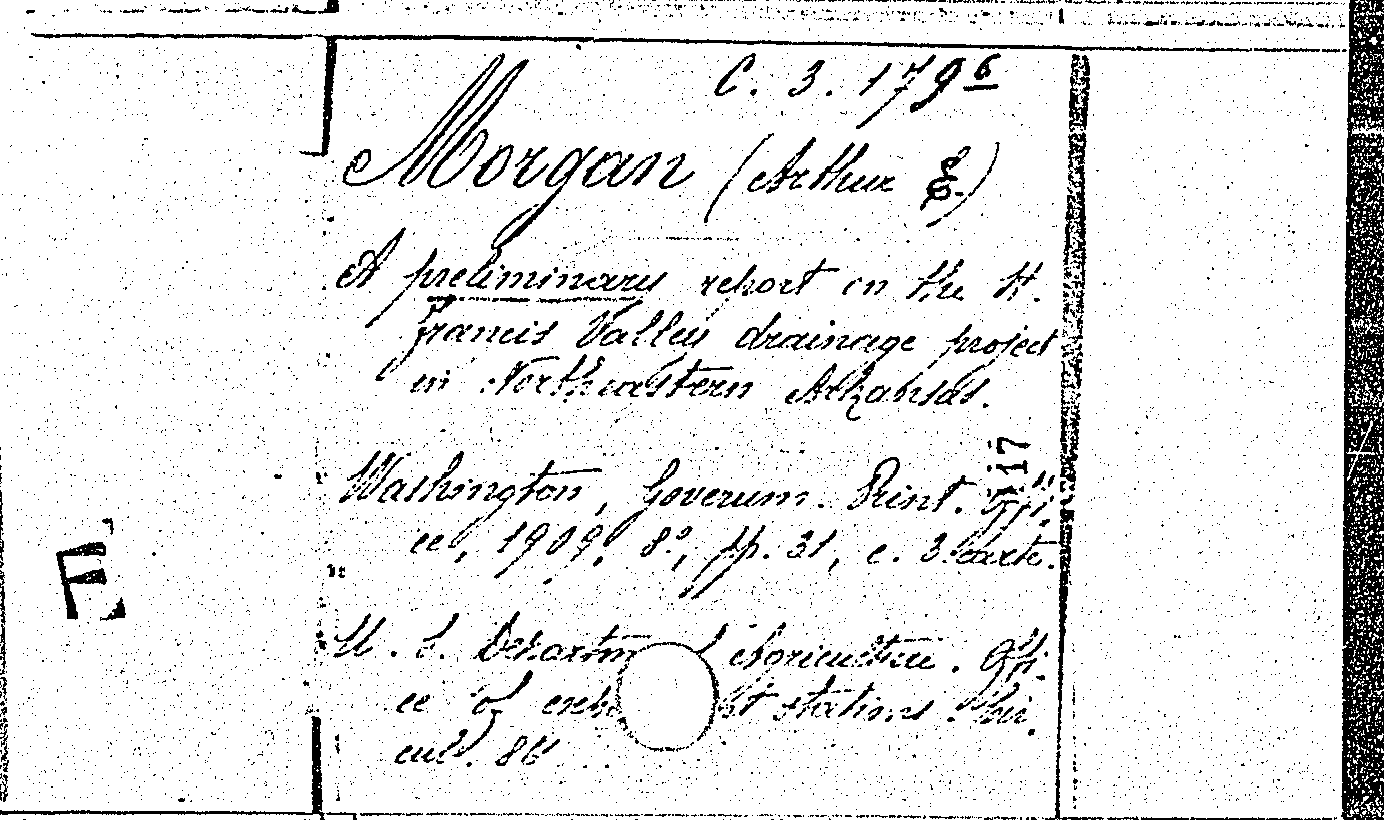 C. 3. 179⁶
Morgan (Arthur E.)
A preliminary report on the St.
Francis Valley drainage project
in Northeastern Arkansas.
117
Washington, Governm. Print. Offi.
ce, 1909, 8.°, pp. 31, c. 3 carte.
U. S. Departm Agriculture. Offi.
ce of stations. Cir.
cul. 86
E